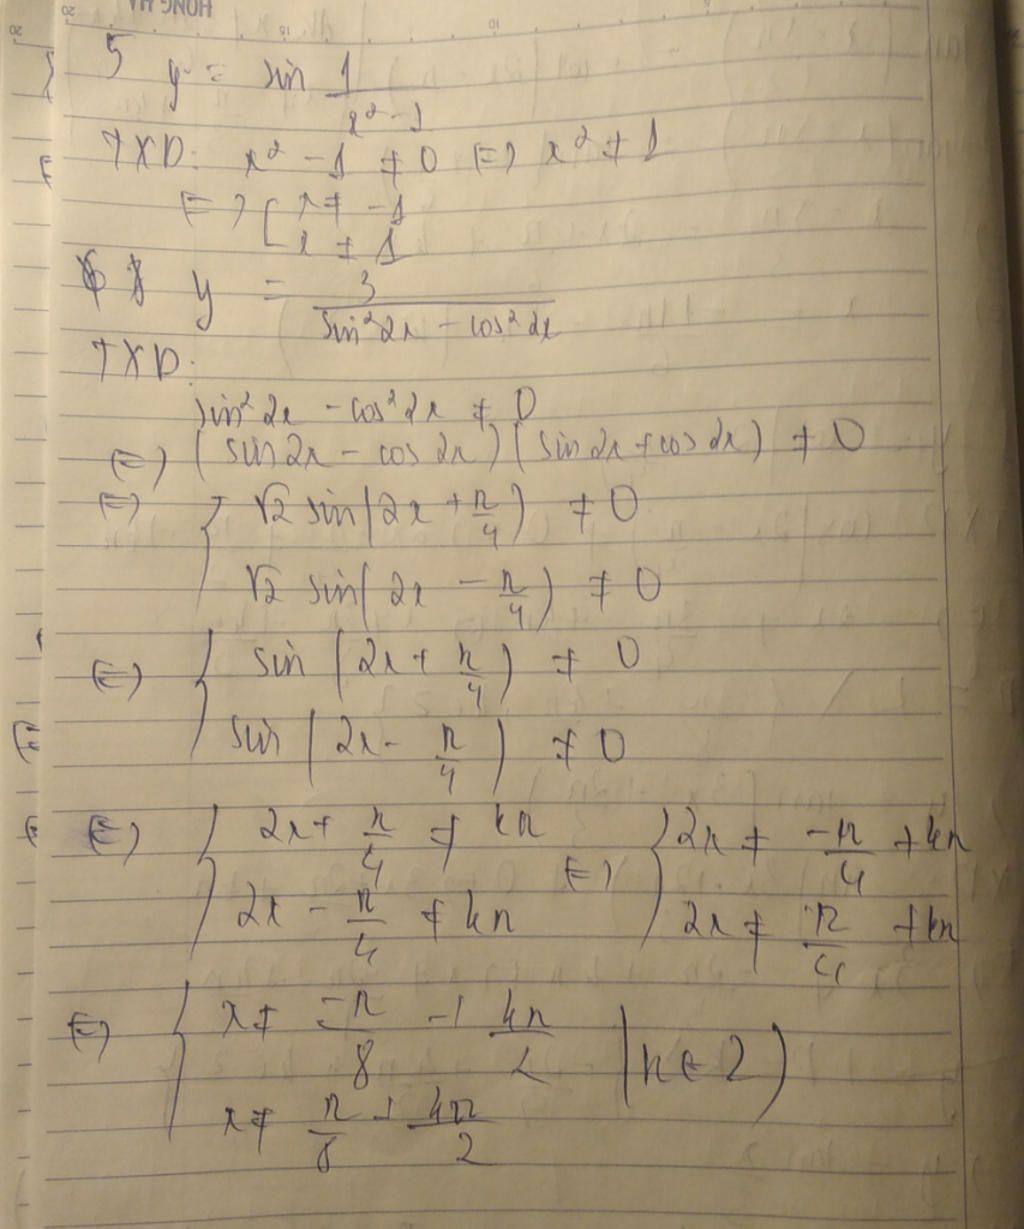 5 y = sin 1/(x² - 1)
TXD: x² - 1 ≠ 0 (=) x² ≠ 1
(=) [ x ≠ -1
x ≠ 1
6 y = 3/(sin²2x - cos²2x)
TXD:
sin²2x - cos²2x ≠ 0
(=) (sin2x - cos2x)(sin2x + cos2x) ≠ 0
(=) { √2 sin(2x + π/4) ≠ 0
√2 sin(2x - π/4) ≠ 0
(=) { sin(2x + π/4) ≠ 0
sin(2x - π/4) ≠ 0
(=) { 2x + π/4 ≠ kπ (=) { 2x ≠ -π/4 + kπ
2x - π/4 ≠ kπ 2x ≠ π/4 + kπ
(=) { x ≠ -π/8 + kπ/2 (k ∈ Z)
x ≠ π/8 + kπ/2